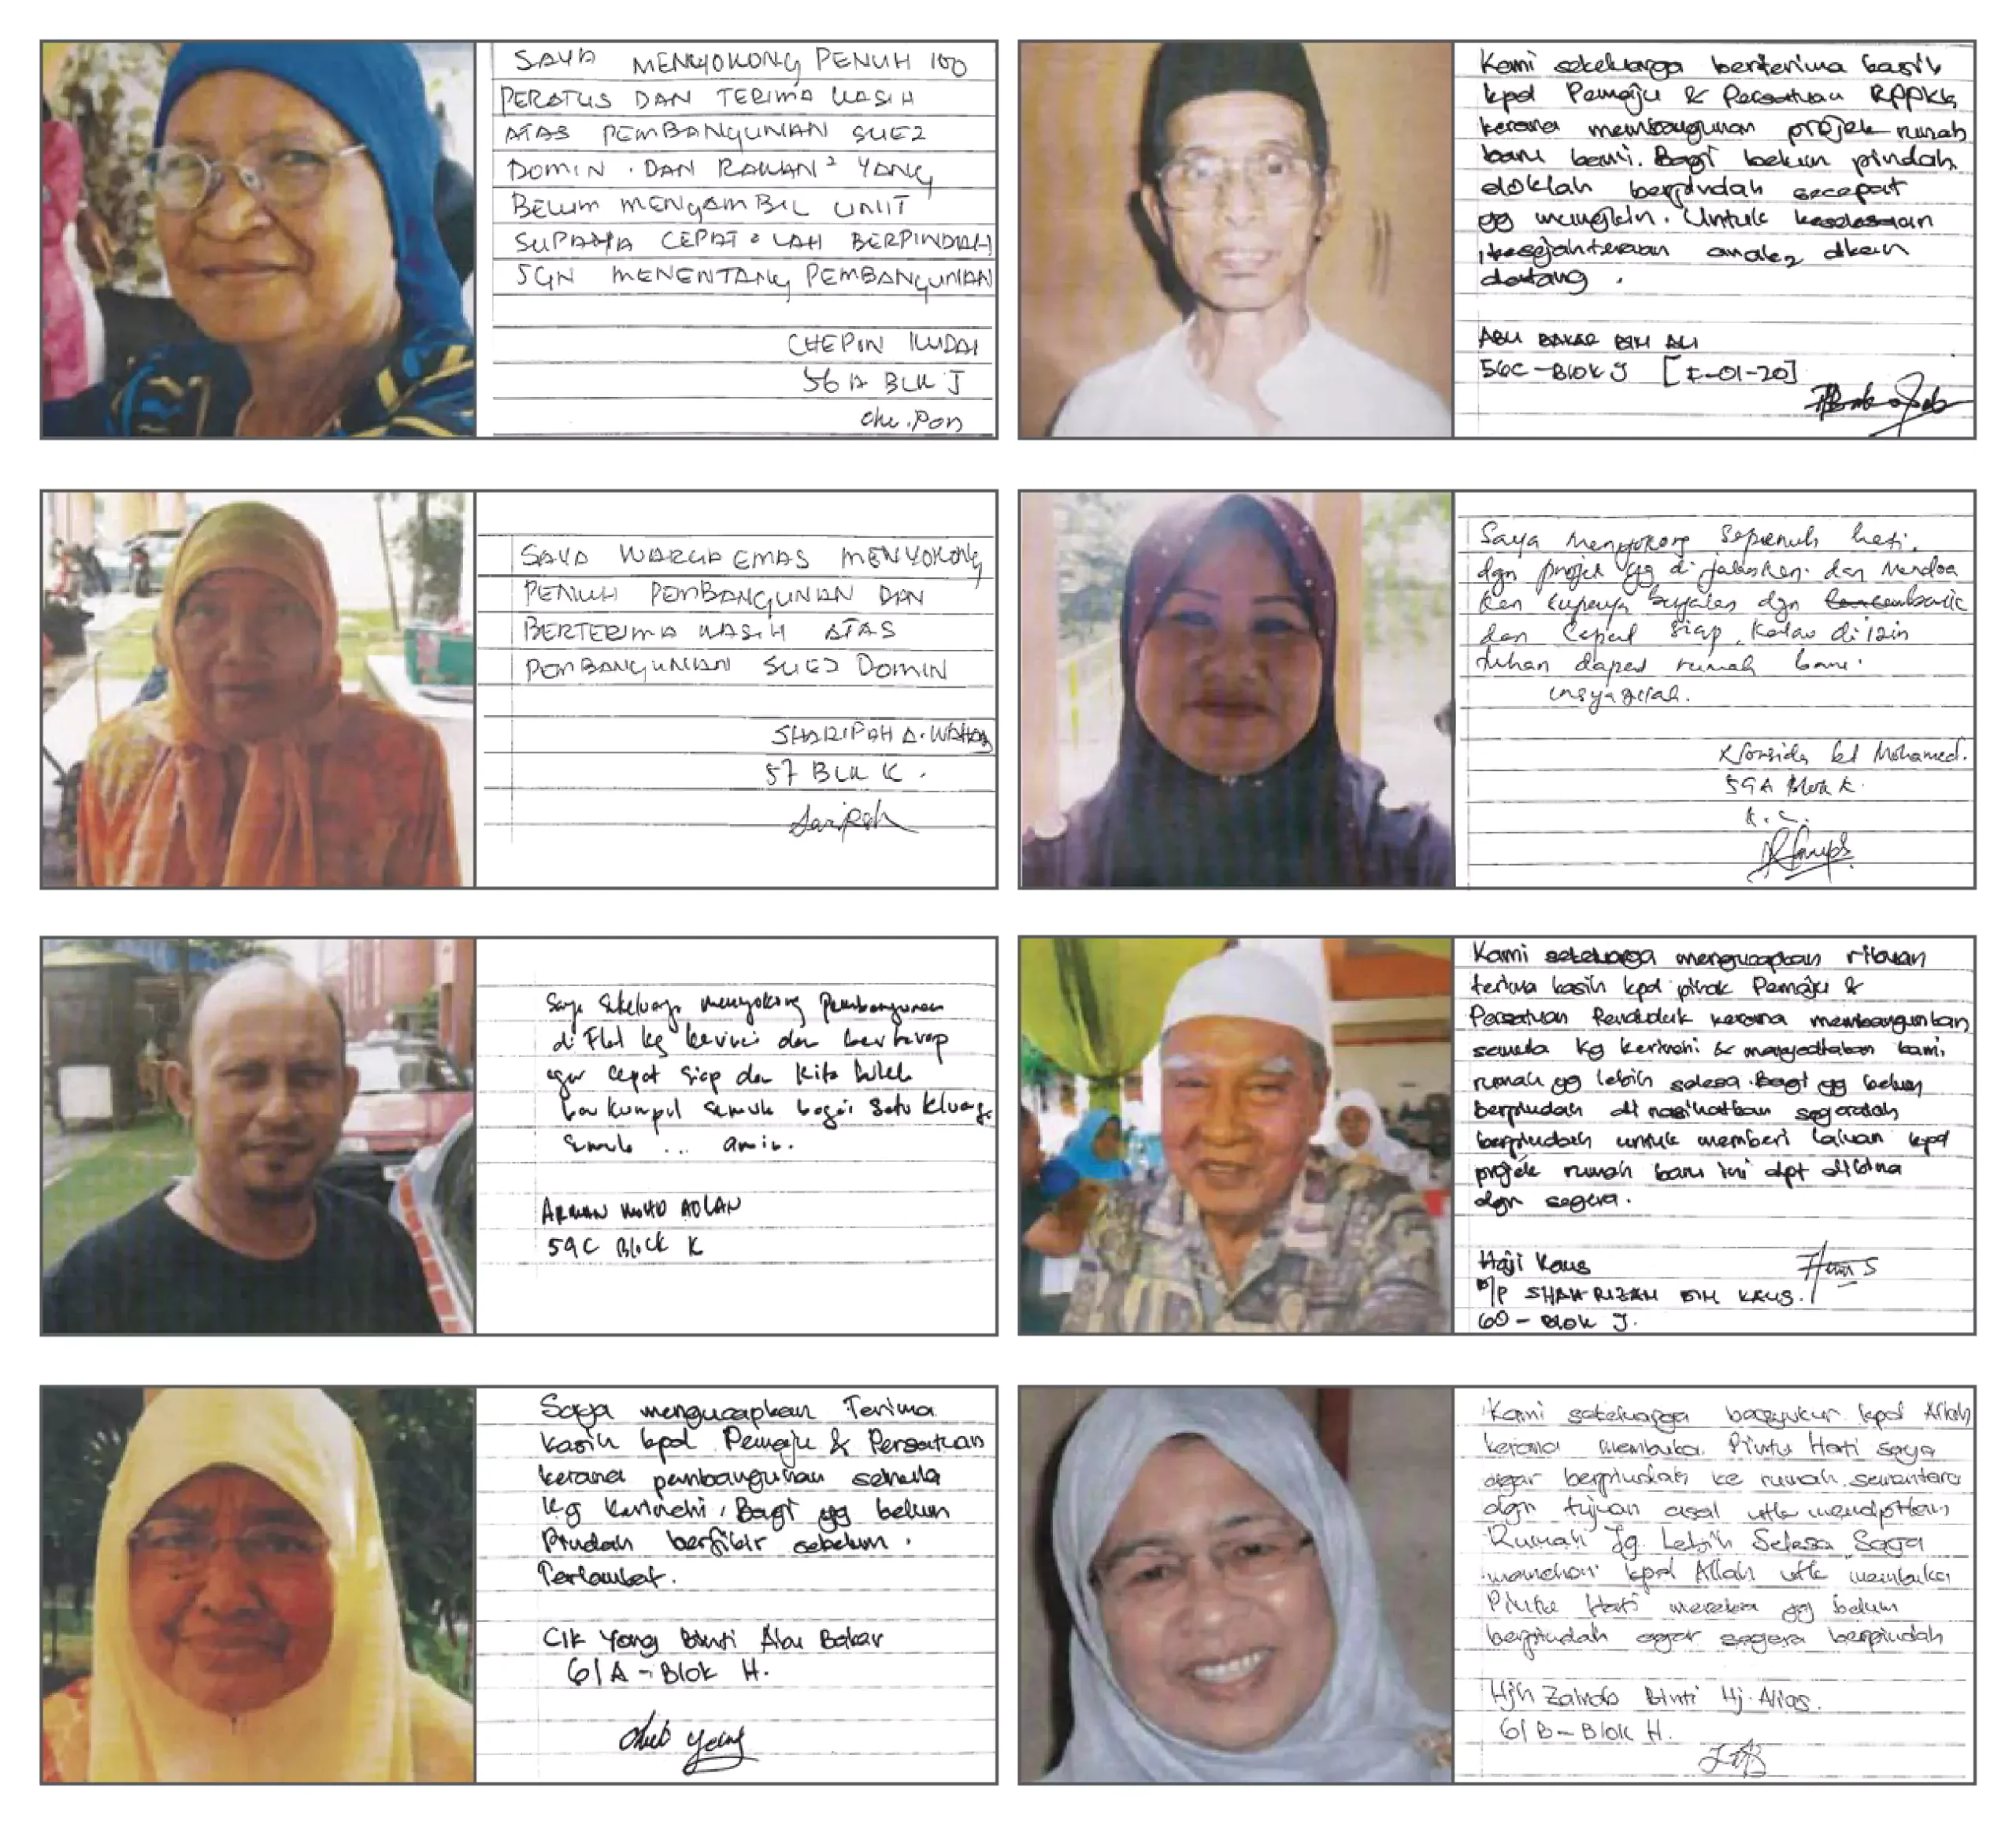 SAYA MENYOKONG PENUH 100
PERATUS DAN TERIMA KASIH
ATAS PEMBANGUNAN SUEZ
DOMIN . DAN RAKAN² YANG
BELUM MENGAMBIL UNIT
SUPAYA CEPAT² LAH BERPINDAH
JGN MENENTANG PEMBANGUNAN
CHEPON KUDAI
56 A BLK J
Che. Pon
Kami sekeluarga berterima kasih
kpd Pemaju & Persatuan RPPKK
kerana membangunan projek rumah
baru kami. Bagi belum pindah
eloklah berpindah secepat
yg mungkin. Untuk
kesejahteraan anak2 akan
datang .
ABU BAKAR BIN ALI
56C - BLOK J [F-01-20]
SAYA WARGA EMAS MENYOKONG
PENUH PEMBANGUNAN DAN
BERTERIMA KASIH ATAS
PEMBANGUNAN SUEZ DOMIN
SHARIPAH A. WAHAB
57 BLK K .
Saripah
Saya menyokong sepenuh hati.
dgn projek yg di jalankan. dan mendoa
kan supaya berjalan dgn baik
dan cepat siap. Kalau di izin
tuhan dapat rumah baru.
insyaallah.
Norsida bt Mohamed.
59A Blok K.
K. L.
Saya sekeluarga menyokong Pembangunan
di Flat kg kerinci dan berharap
agar cepat siap dan kita boleh
berkumpul semula bagai satu kluarga
semula ... amin.
ARMAN MOHD ADLAN
59C Block K
Kami sekeluarga mengucapkan ribuan
terima kasih kpd pihak Pemaju &
Persatuan Penduduk kerana membangunkan
semula Kg Kerinchi & menyediakan kami
rumah yg lebih selesa. Bagi yg belum
berpindah di nasihatkan segeralah
berpindah untuk memberi laluan kpd
projek rumah baru ini dpt dibina
dgn segera.
Haji Kaus
B/P SHAHRIZAN BIN KAUS.
60 - BLOK J.
Saya mengucapkan Terima
kasih kpd Pemaju & Persatuan
kerana pembangunan semula
kg Kerinchi, Bagi yg belum
Pindah berfikir sebelum .
Terlambat.
Cik Yong Binti Abu Bakar
61A - Blok H.
Chik Yong
Kami sekeluarga bersyukur kpd Allah
kerana membuka Pintu Hati saya
agar berpindah ke rumah sementara
dgn tujuan asal utk mendptkan
Rumah Yg Lebih Selesa. Saya
memohon kpd Allah utk membuka
Pintu Hati mereka yg belum
berpindah agar segera berpindah
Hjh Zainab Binti Hj. Alias.
61B - Blok H.